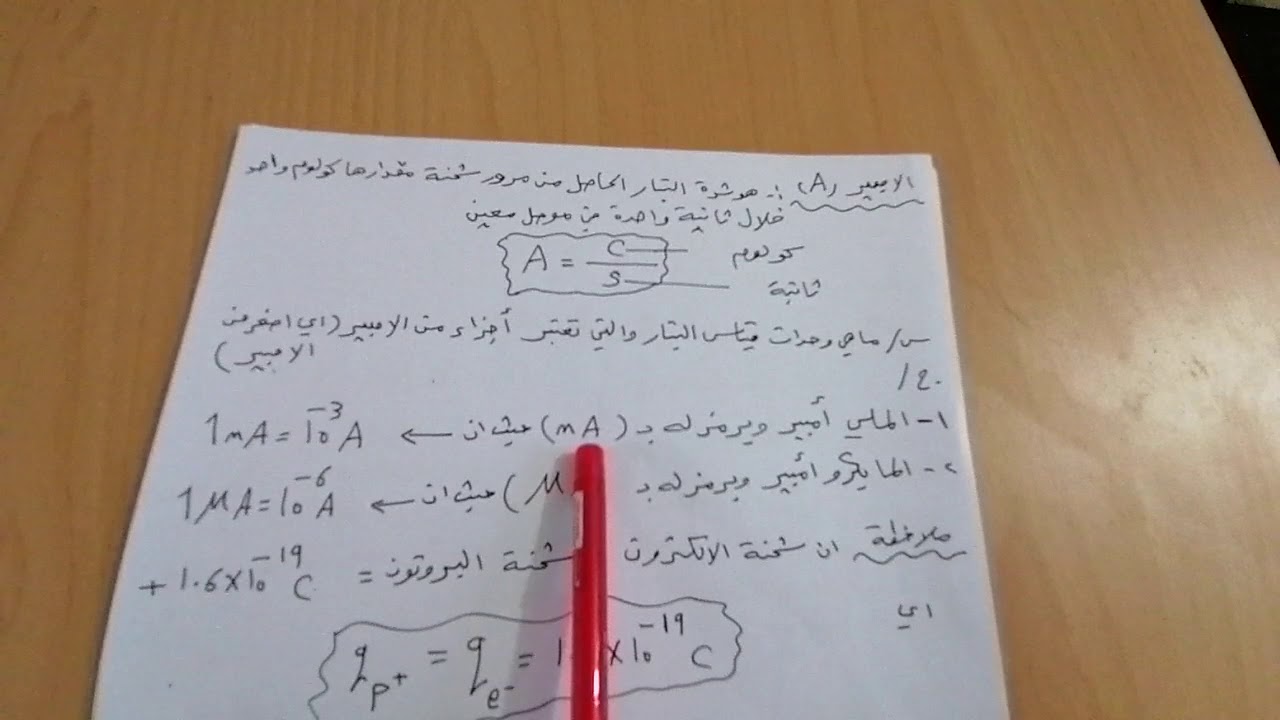 الامبير (A) :- هو شدة التيار الحاصل من مرور شحنة مقدارها كولوم واحد
خلال ثانية واحدة في موصل معين
A = C/S كولوم ثانية
س/ ماهي وحدات قياس التيار والتي تعتبر أجزاء من الامبير (اي اصغر من
الامبير)
ج/
١- الملي أمبير ويرمز له بـ (mA) حيث ان ← 1mA = 10⁻³ A
٢- المايكرو أمبير ويرمز له بـ (M ) حيث ان ← 1MA = 10⁻⁶ A
ملاحظة ان شحنة الالكترون شحنة البروتون = + 1.6x10⁻¹⁹ C
اي
q p⁺ = q e⁻ = 1. x10⁻¹⁹ C